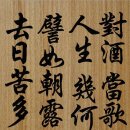 對酒當歌
人生幾何
譬如朝露
去日苦多